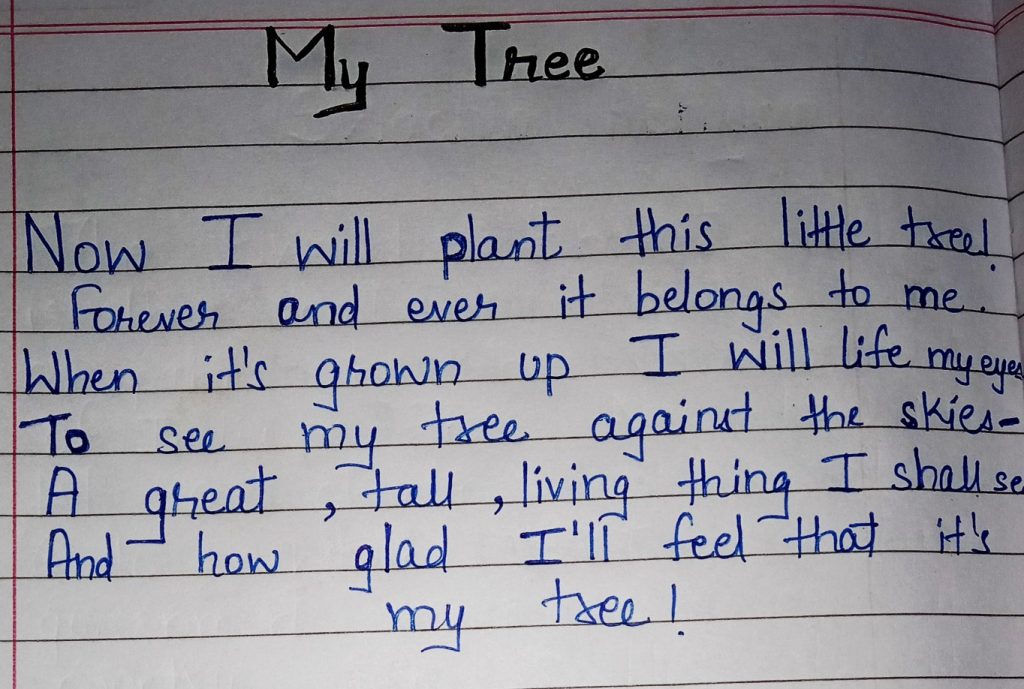 My Tree
Now I will plant this little tree!
Forever and ever it belongs to me.
When it's grown up I will life my eyes
To see my tree against the skies-
A great, tall, living thing I shall se
And how glad I'll feel that it's
my tree!